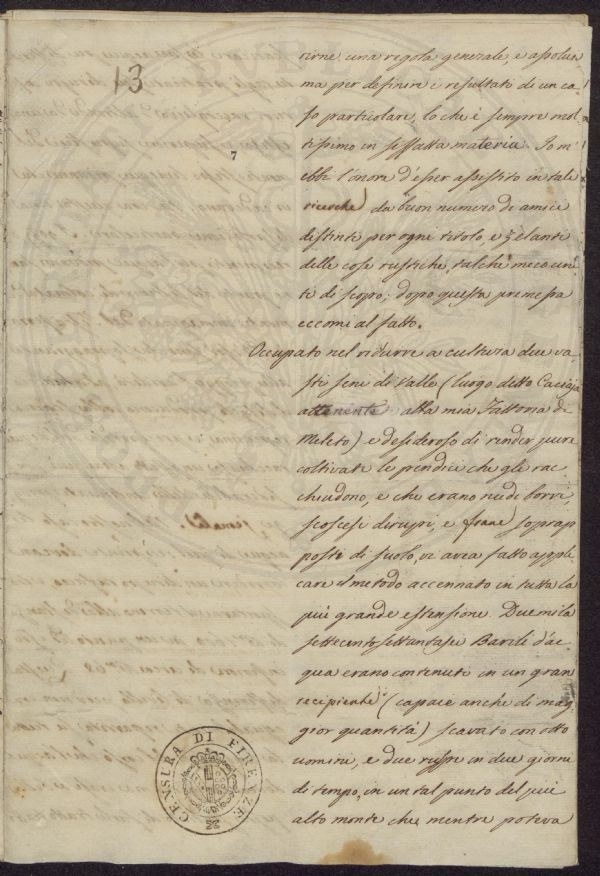 13
7
rirne una regola generale, e assolutis
ma per definire i resultati di un ca,
so particolare, lo che è sempre mol,
tissimo in siffatta materia. Io m'
ebbi l'onore d'esser assistito in tale
ricerche da buon numero di amici
distinti per ogni titolo, e zelanti
delle cose rustiche, talchè meco uni,
ti di scopo; dopo questa premessa
eccomi al fatto.
Occupato nel ridurre a cultura due va,
sti seni di Valle (luogo detto
attenente alla mia Fattoria di
Meleto) e desideroso di render pure
coltivate le pendici che gli rac,
chiudono, e che erano nudi borri,
scoscesi dirupi, e frane soprap,
posti di suolo, vi avea fatto appli,
care il metodo accennato in tutta la
più grande estensione. Due mila
settecentosettantasei Barili d'ac,
qua erano contenuti in un gran
recipiente (capace anche di mag,
gior quantità) scavato con otto
uomini, e due ruspe in due giorni
di tempo, in un tal punto del più
alto monte che mentre poteva
CENSURA DI FIRENZE